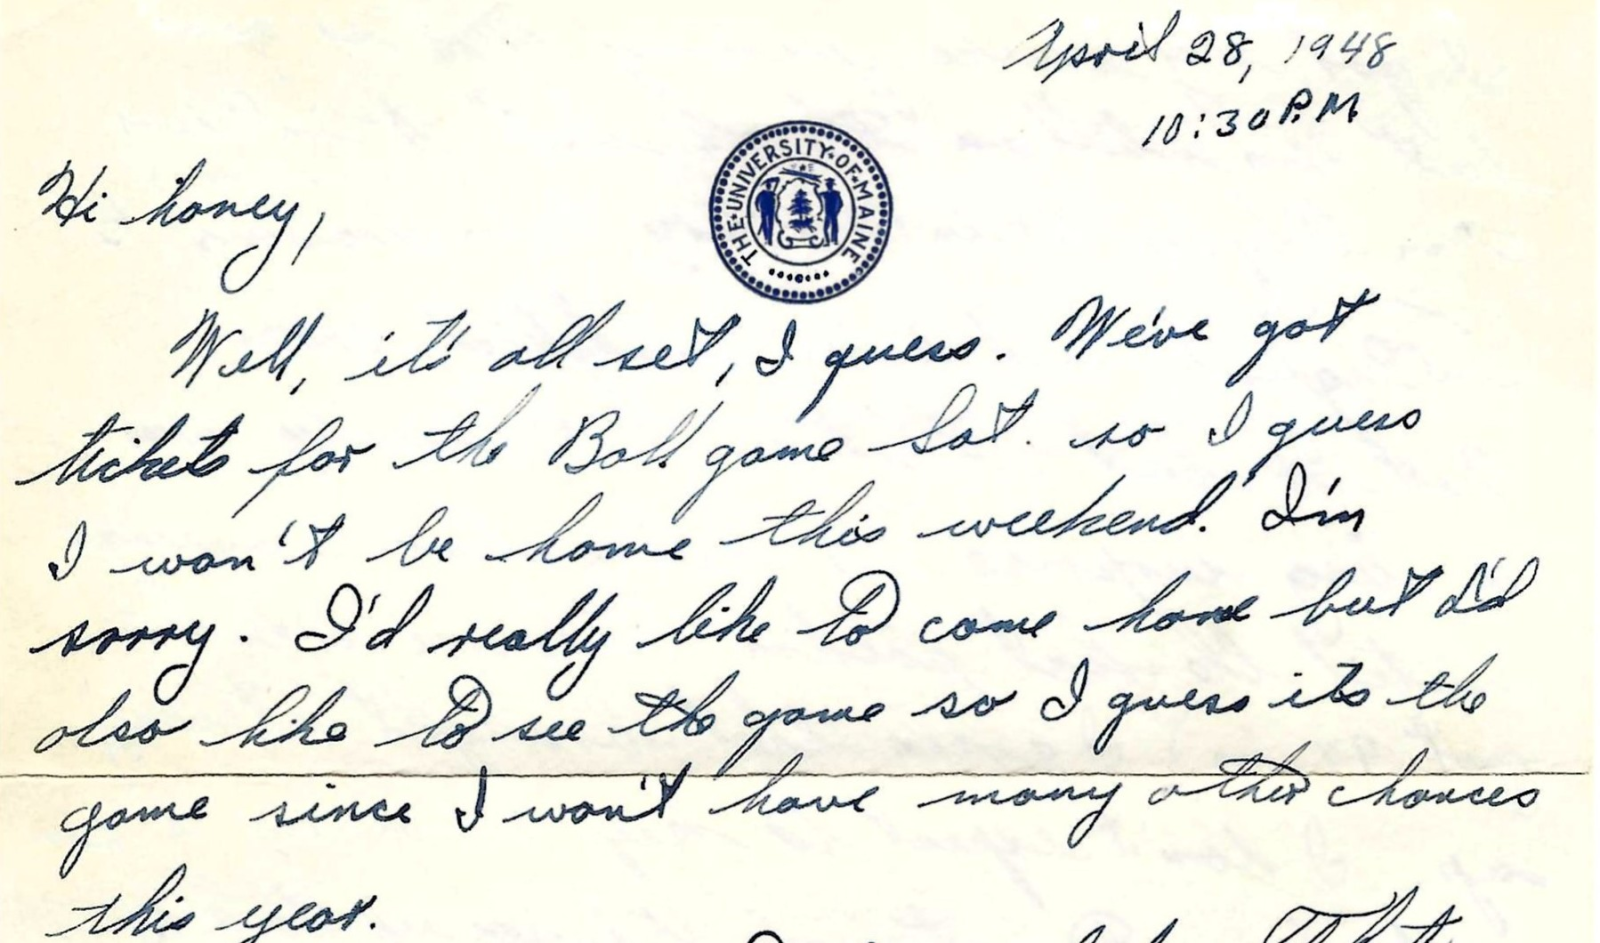 April 28, 1948
10:30 P.M.
THE·UNIVERSITY·OF·MAINE
Hi honey,
Well, it's all set, I guess. We've got
tickets for the Ball game Sat. so I guess
I won't be home this weekend. I'm
sorry. I'd really like to come home but I'd
also like to see the game so I guess its the
game since I won't have many other chances
this year.